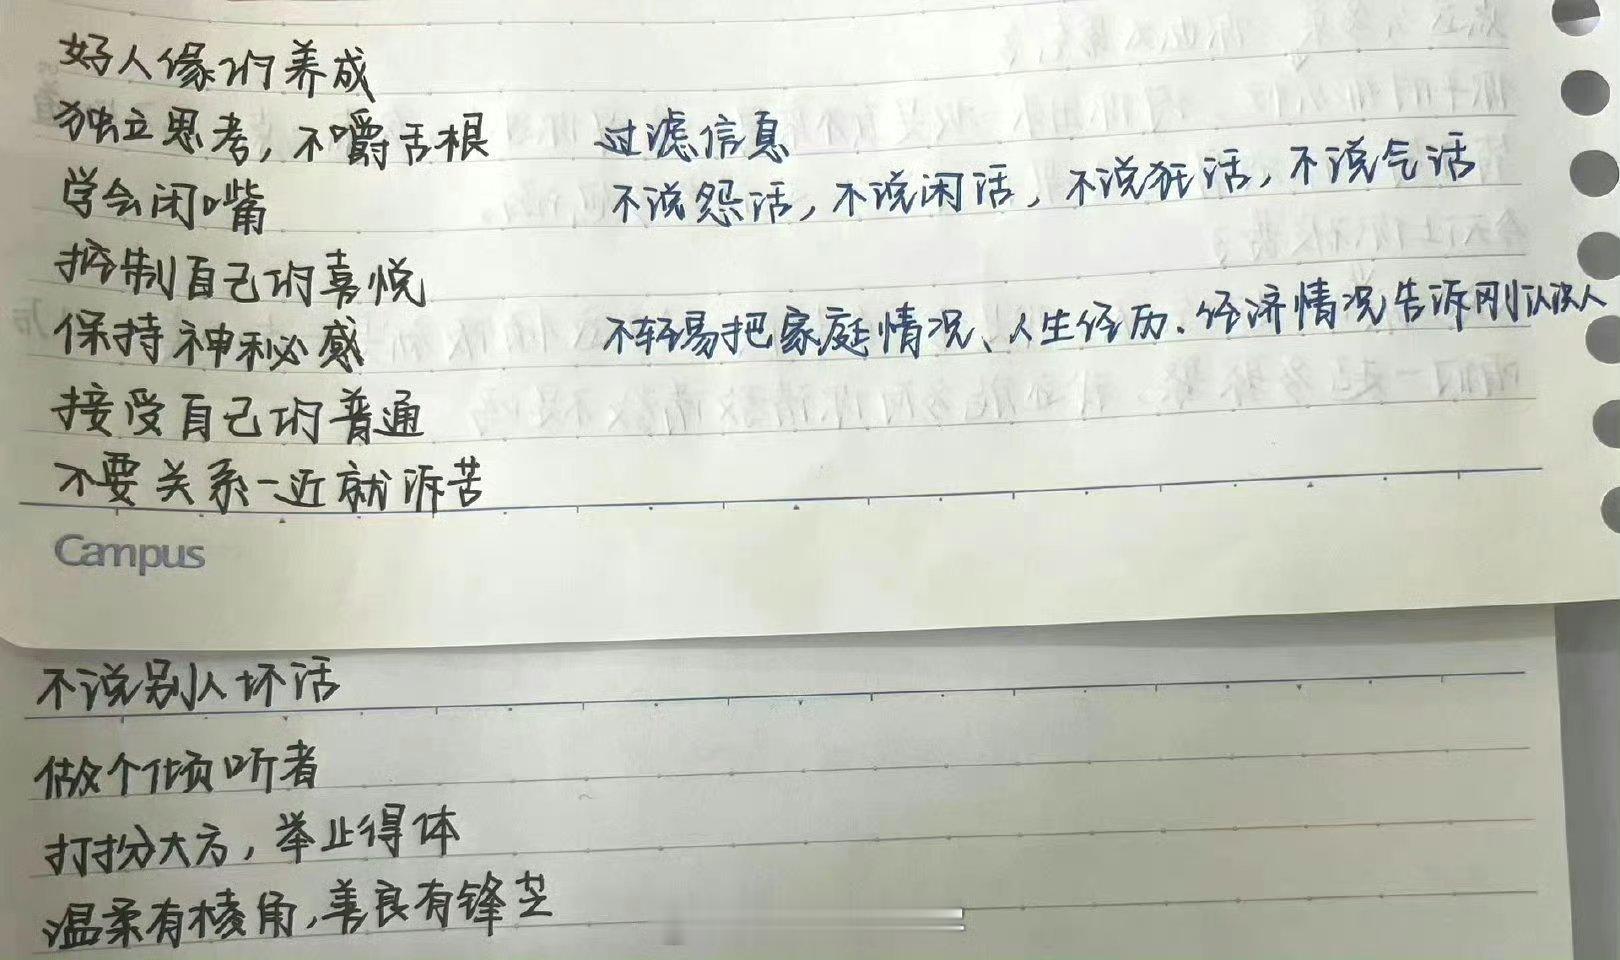 好人缘的养成
独立思考，不嚼舌根 过滤信息
学会闭嘴 不说怨话，不说闲话，不说狂话，不说气话
控制自己的喜悦
保持神秘感 不轻易把家庭情况、人生经历、经济情况告诉刚认识人
接受自己的普通
不要关系一近就诉苦
Campus
不说别人坏话
做个倾听者
打扮大方，举止得体
温柔有棱角，善良有锋芝